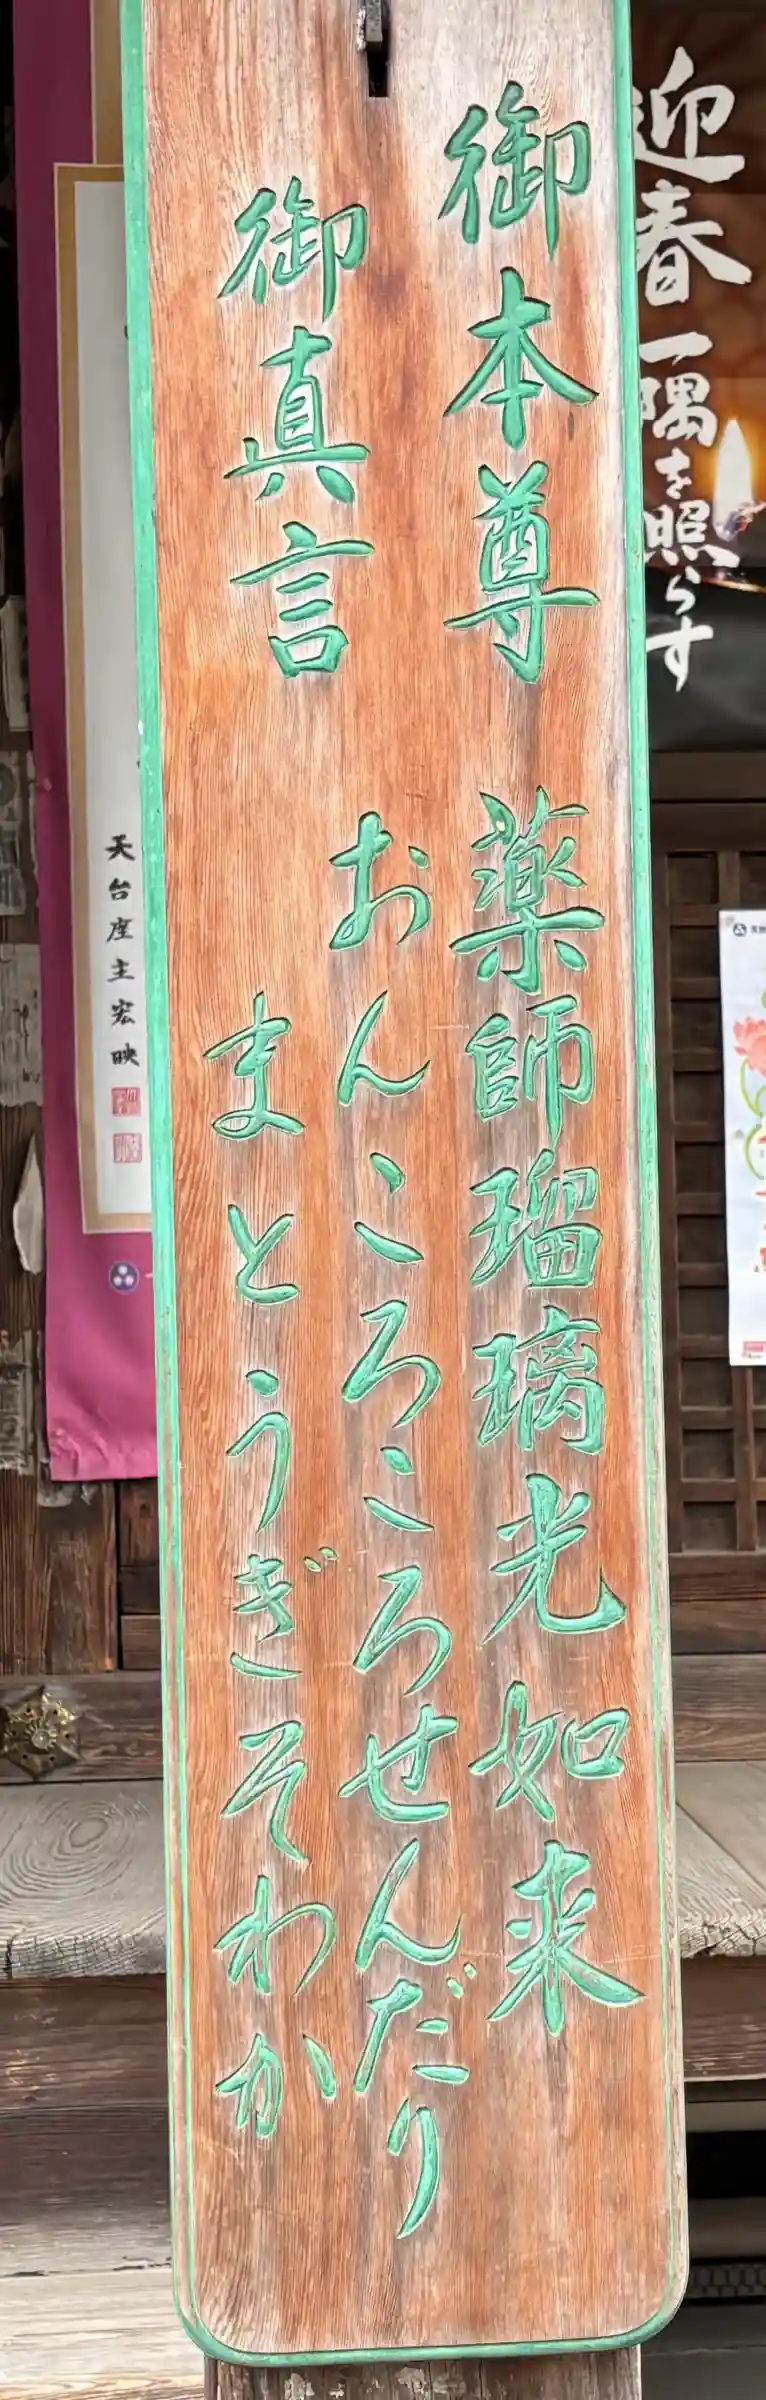 御本尊 薬師瑠璃光如来
御真言 おんころころせんだり
まとうぎそわか
迎春
一隅を照らす
天台座主宏映